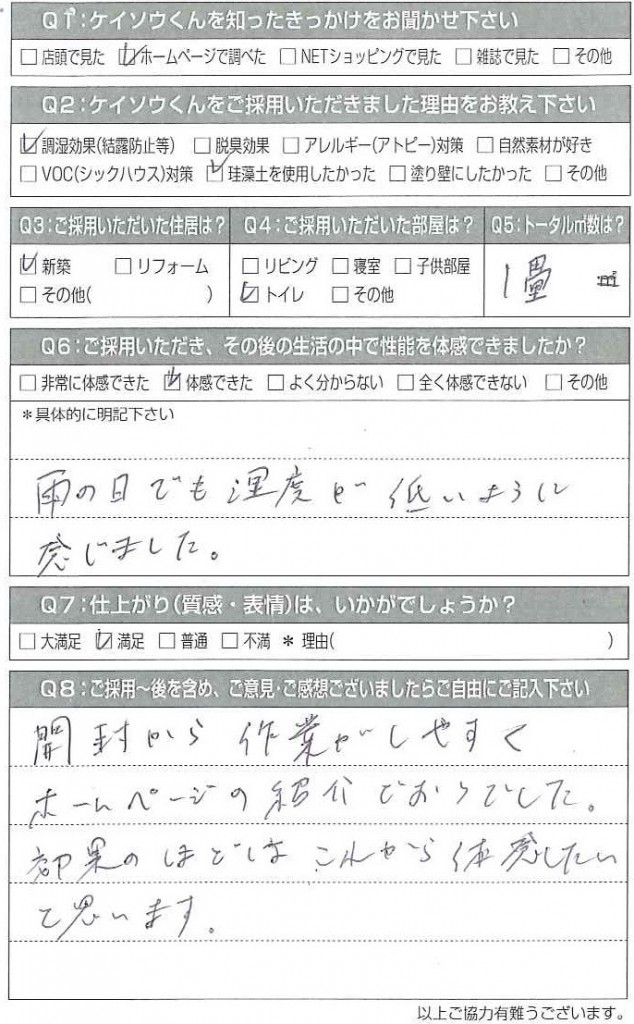 Q1:ケイソウくんを知ったきっかけをお聞かせ下さい
□店頭で見た ☑ホームページで調べた □NETショッピングで見た □雑誌で見た □その他
Q2:ケイソウくんをご採用いただきました理由をお教え下さい
☑調湿効果(結露防止等) □脱臭効果 □アレルギー(アトピー)対策 □自然素材が好き
□VOC(シックハウス)対策 ☑珪藻土を使用したかった □塗り壁にしたかった □その他
Q3:ご採用いただいた住居は? Q4:ご採用いただいた部屋は? Q5:トータル㎡数は?
☑新築 □リフォーム □リビング □寝室 □子供部屋 1畳 ㎡
□その他( ) ☑トイレ □その他
Q6:ご採用いただき、その後の生活の中で性能を体感できましたか?
□非常に体感できた ☑体感できた □よく分からない □全く体感できない □その他
*具体的に明記下さい
雨の日でも湿度が低いように
感じました。
Q7:仕上がり(質感・表情)は、いかがでしょうか?
□大満足 ☑満足 □普通 □不満 *理由( )
Q8:ご採用~後を含め、ご意見・ご感想ございましたらご自由にご記入下さい
開封から作業がしやすく
ホームページの紹介どおりでした。
効果のほどは これから体感したい
と思います。
以上ご協力有難うございます。